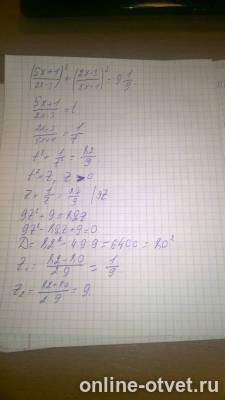 (5x+1 / 2x-3)² + (2x-3 / 5x+1)² = 9 1/9
5x+1 / 2x-3 = t
2x-3 / 5x+1 = 1/t
t² + 1/t² = 82/9
t² = z, z > 0
z + 1/z = 82/9 | 9z
9z² + 9 = 82z
9z² - 82z + 9 = 0
D = 82² - 4·9·9 = 6400 = 80²
z₁ = 82-80 / 2·9 = 1/9
z₂ = 82+80 / 2·9 = 9
online-otvet.ru